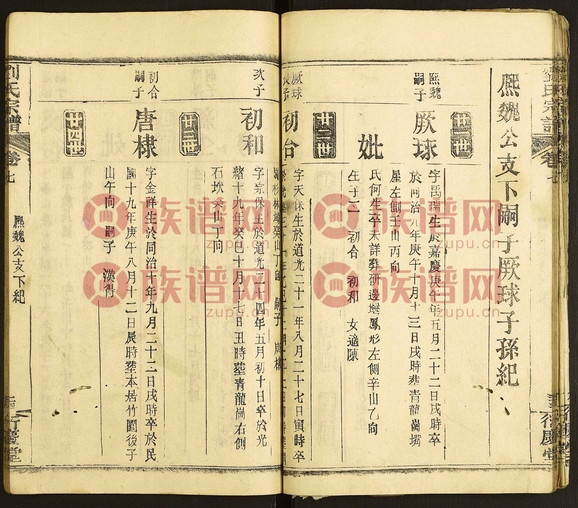 劉氏宗譜
卷七
熈魏公支下嗣子厥球子孫紀
熈魏
嗣子
厥球
字禹瑾生於嘉慶庚午年五月二十二日戌時卒
於同治九年庚午十月十三日戌時葬青龍嘴塆
屋左側壬山丙向
妣
氏何生卒未詳葬研邊塆鳳形左側辛山乙向
生子二 初台 初和 女適陳
厥球
次子
廿三世
初台
字天保生於道光二十一年八月二十七日寅時卒
次子
初和
廿三世
字宗保生於道光二十四年五月初十日卒於光
緒十九年癸巳十月十七日丑時葬青龍嵩右側
石坎癸山丁向
初台
嗣子
唐棣
廿四世
字金祥生於同治十年九月二十二日戌時卒於民
國十九年庚午八月十二日辰時葬本居竹園後子
山午向 嗣子 漢得
劉氏宗譜
卷七
熈魏公支下紀
族谱网
zupu.cn
族谱网
zupu.cn
族谱网
zupu.cn
族谱网
zupu.cn